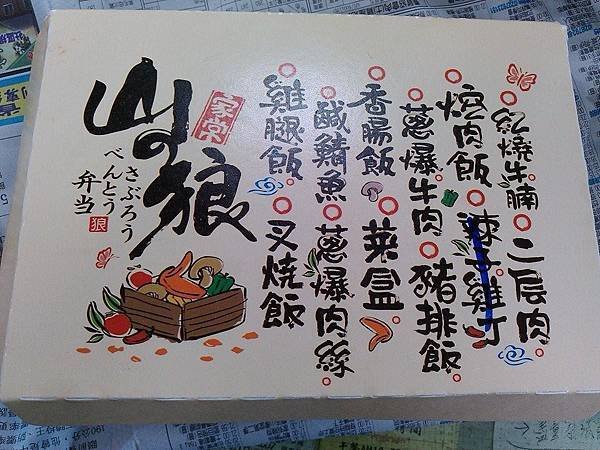 紅燒牛腩 二层肉
焢肉飯 辣子雞丁
蔥爆牛肉 豬排飯
香腸飯 菜盒
鹹鯖魚 蔥爆肉絲
雞腿飯 叉燒飯
家常
山の狼
さぶろう
べんとう
弁当
狼